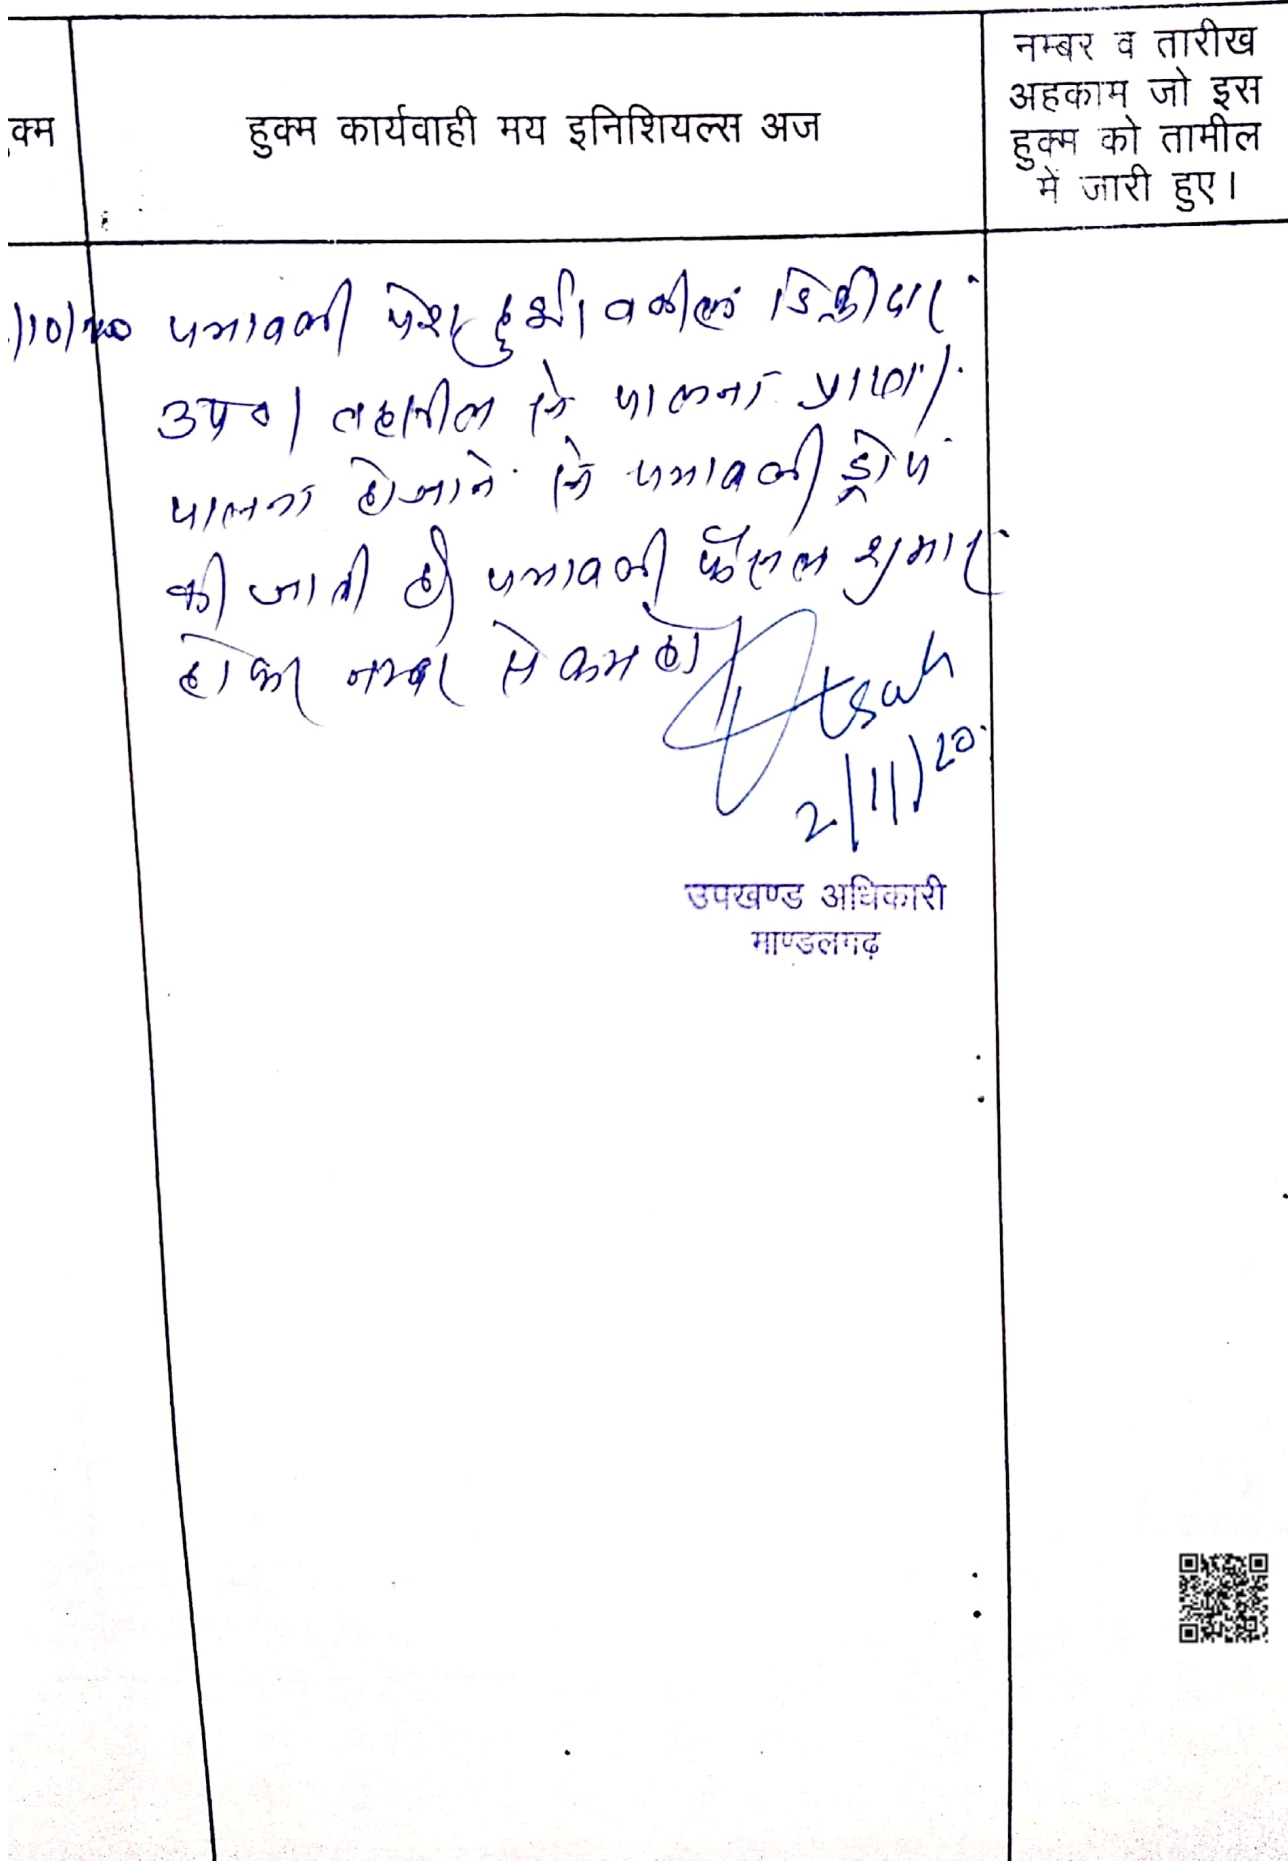 क्म
हुक्म कार्यवाही मय इनिशियल्स अज
नम्बर व तारीख
अहकाम जो इस
हुक्म को तामील
में जारी हुए।
/10/20 पत्रावली पेश हुई। वकील डिक्रीदार
उप०। तहसील से पालना प्राप्त।
पालना हो जाने से पत्रावली ड्रोप
की जाती है। पत्रावली फैसल शुमार
होकर नम्बर से कम हो।
2/11/20
उपखण्ड अधिकारी
माण्डलगढ़